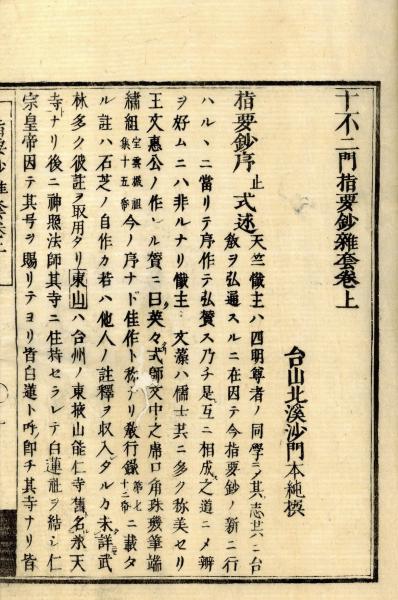 十不二門指要鈔雜套卷上
台山北溪沙門本純撰
指要鈔序 止 式述 天竺懺主ハ四明尊者ノ同學ニシテ其志共ニ台
教ヲ弘通スルニ在因テ今指要鈔ノ新ニ行
ハルヽニ當リテ序作テ弘賛ス乃チ是互ニ相成之道ニメ辨
ヲ好ムニハ非ルナリ懺主ノ文藻ハ儒士其ニ多ク称美セリ
王文惠公ノ作ル賛ニ曰英々式師文中之席口角珠璣筆端
繡組 今ノ序ナド佳作ト称ナリ教行錄 第七 十二帋 ニ載タ
ル註ハ石芝ノ自作カ若ハ他人ノ註釋ヲ収入タルカ未詳武
林多ク彼註ヲ取用タリ東山ハ台州ノ東掖山能仁寺舊名承天
寺ナリ後ニ神照法師其寺ニ住持セラレテ白蓮社ヲ結シ仁
宗皇帝因テ其号ヲ賜リテヨリ皆白蓮ト呼即チ其寺ナリ皆